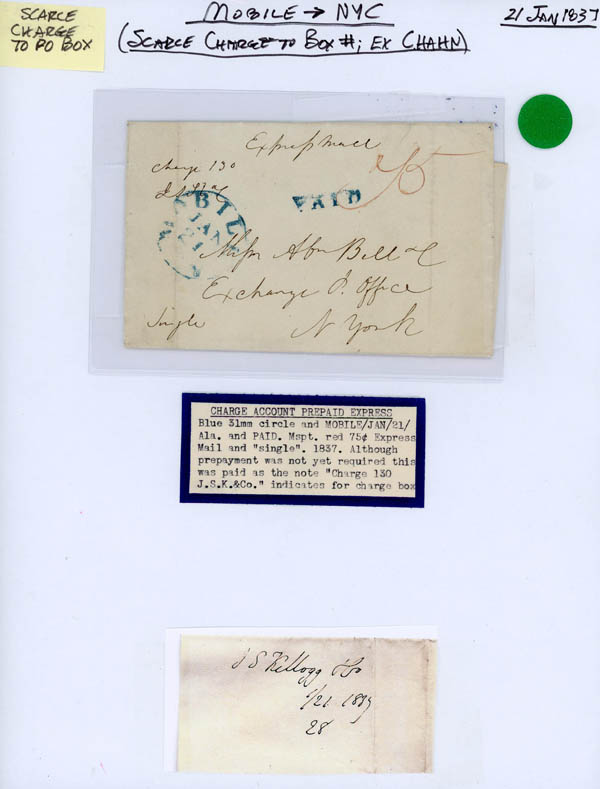 SCARCE
CHARGE
TO PO BOX
MOBILE → NYC
(SCARCE CHARGE TO BOX #; EX CHAHN)
21 JAN 1837
Express Mail
Charge 130
PAID
75
MOBILE
JAN
21
Messrs Abm Bell &C
Exchange P. Office
N York
Single
CHARGE ACCOUNT PREPAID EXPRESS
Blue 31mm circle and MOBILE/JAN/21/
Ala. and PAID. Mspt. red 75¢ Express
Mail and "single". 1837. Although
prepayment was not yet required this
was paid as the note "Charge 130
J.S.K.&Co." indicates for charge box
J S Kellogg & Co
1/21 1837
28